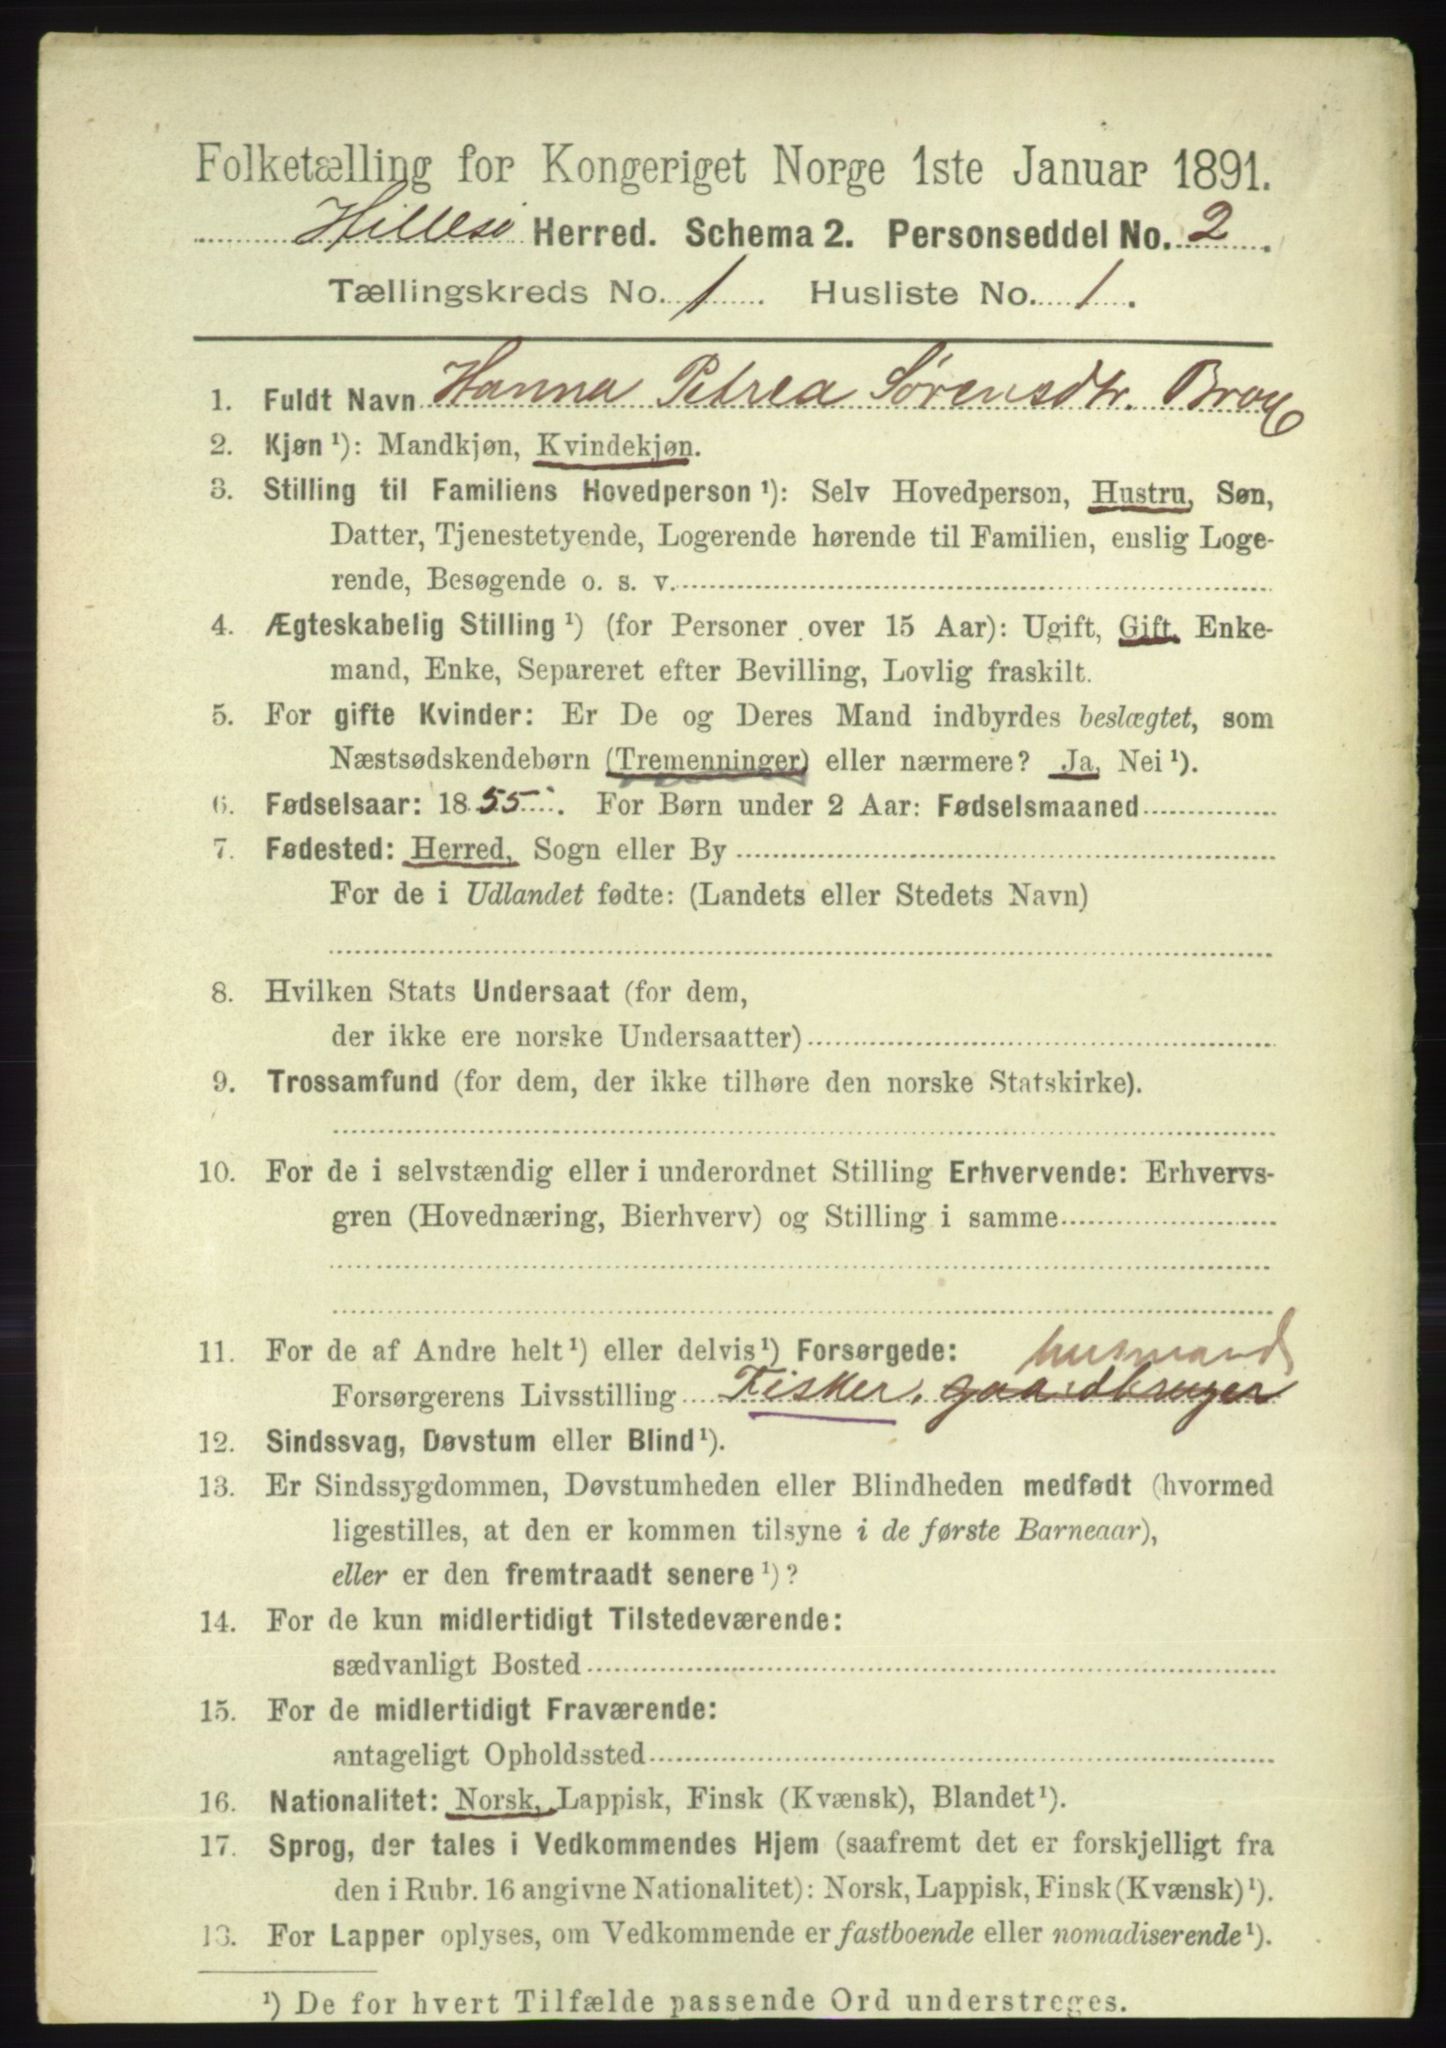 Folketælling for Kongeriget Norge 1ste Januar 1891.
Hillesø Herred. Schema 2. Personseddel No. 2.
Tællingskreds No. 1. Husliste No. 1.
1. Fuldt Navn Hanna Petrea Sørensdtr. Brox
2. Kjøn ¹): Mandkjøn, Kvindekjøn.
3. Stilling til Familiens Hovedperson ¹): Selv Hovedperson, Hustru, Søn,
Datter, Tjenestetyende, Logerende hørende til Familien, enslig Loge-
rende, Besøgende o. s. v.
4. Ægteskabelig Stilling ¹) (for Personer over 15 Aar): Ugift, Gift, Enke-
mand, Enke, Separeret efter Bevilling, Lovlig fraskilt.
5. For gifte Kvinder: Er De og Deres Mand indbyrdes beslægtet, som
Næstsødskendebørn (Tremenninger) eller nærmere? Ja, Nei ¹).
6. Fødselsaar: 1855. For Børn under 2 Aar: Fødselsmaaned
7. Fødested: Herred, Sogn eller By
For de i Udlandet fødte: (Landets eller Stedets Navn)
8. Hvilken Stats Undersaat (for dem,
der ikke ere norske Undersaatter)
9. Trossamfund (for dem, der ikke tilhøre den norske Statskirke).
10. For de i selvstændig eller i underordnet Stilling Erhvervende: Erhvervs-
gren (Hovednæring, Bierhverv) og Stilling i samme
11. For de af Andre helt ¹) eller delvis ¹) Forsørgede: husmand
Forsørgerens Livsstilling Fisker, gaardbruger
12. Sindssvag, Døvstum eller Blind ¹).
13. Er Sindssygdommen, Døvstumheden eller Blindheden medfødt (hvormed
ligestilles, at den er kommen tilsyne i de første Barneaar),
eller er den fremtraadt senere ¹)?
14. For de kun midlertidigt Tilstedeværende:
sædvanligt Bosted
15. For de midlertidigt Fraværende:
antageligt Opholdssted
16. Nationalitet: Norsk, Lappisk, Finsk (Kvænsk), Blandet ¹).
17. Sprog, der tales i Vedkommendes Hjem (saafremt det er forskjelligt fra
den i Rubr. 16 angivne Nationalitet): Norsk, Lappisk, Finsk (Kvænsk) ¹).
18. For Lapper oplyses, om Vedkommende er fastboende eller nomadiserende ¹).
¹) De for hvert Tilfælde passende Ord understreges.